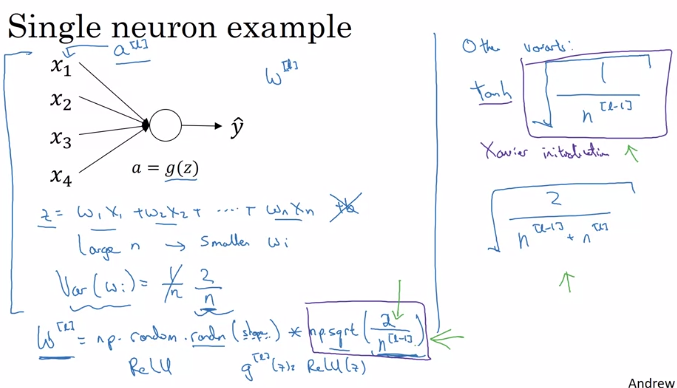 Single neuron example
a^[l]
x₁
x₂
x₃
x₄
w^[l]
ŷ
a = g(z)
z = w₁x₁ + w₂x₂ + ... + wₙxₙ + b
Large n → Smaller wᵢ
Var(wᵢ) = 1/n 2/n
W^[l] = np.random.randn(shape) * np.sqrt(2/n^[l-1])
ReLU g^[l](z) = ReLU(z)
Other variants:
tanh √(1/n^[l-1])
Xavier initialization
√(2/(n^[l-1] + n^[l]))
Andrew